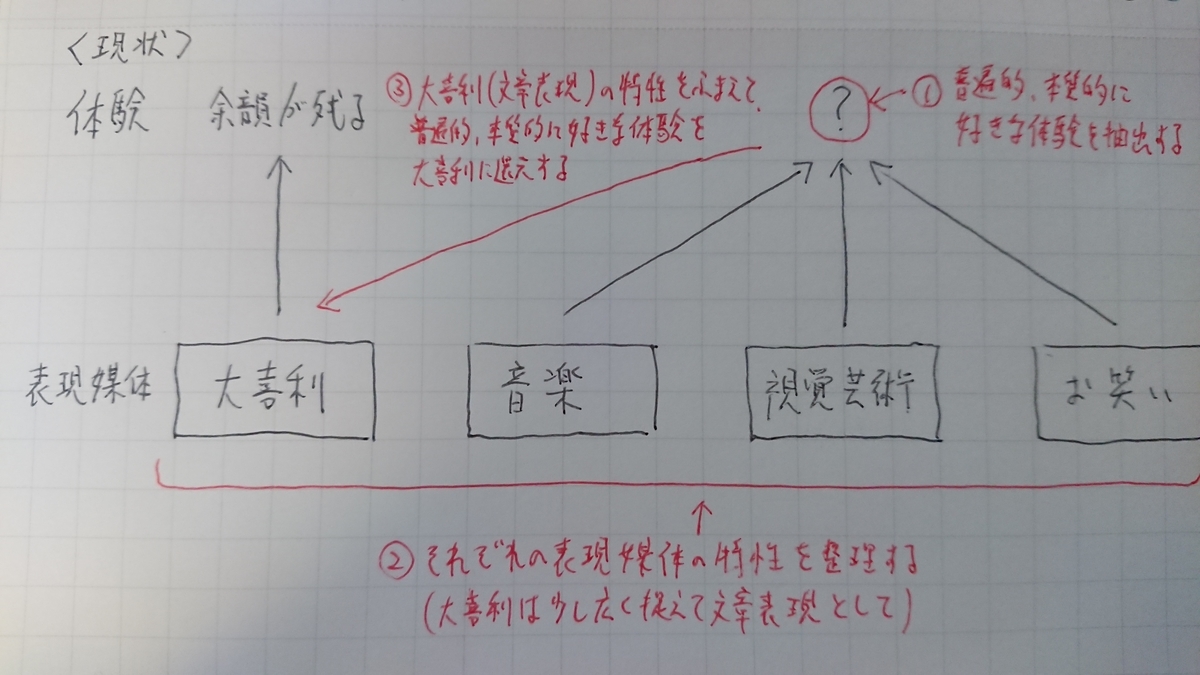 〈現状〉
体験 余韻が残る
③大喜利(文章表現)の特性をふまえて、
普遍的、本質的に好きな体験を
大喜利に還元する
?
①普遍的、本質的に
好きな体験を抽出する
表現媒体 大喜利 音楽 視覚芸術 お笑い
②それぞれの表現媒体の特性を整理する
(大喜利は少し広く捉えて文章表現として)